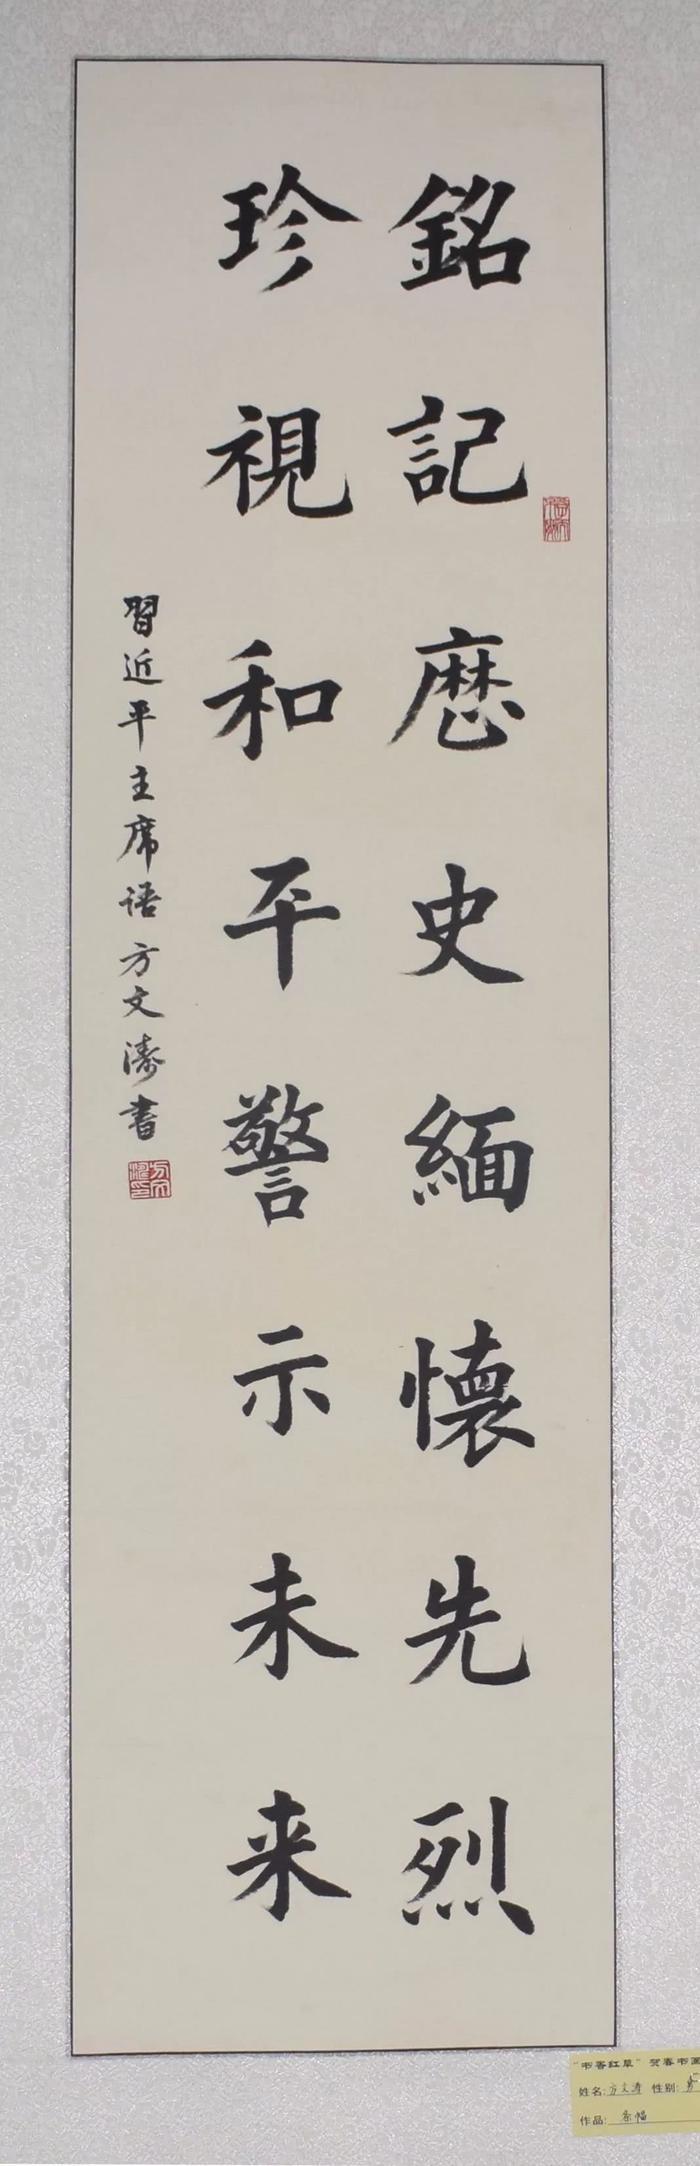 銘記歷史緬懷先烈
珍視和平警示未来
習近平主席语方文濤書
"书香红草"贺春书画
姓名:方文涛 性别:男
作品:条幅